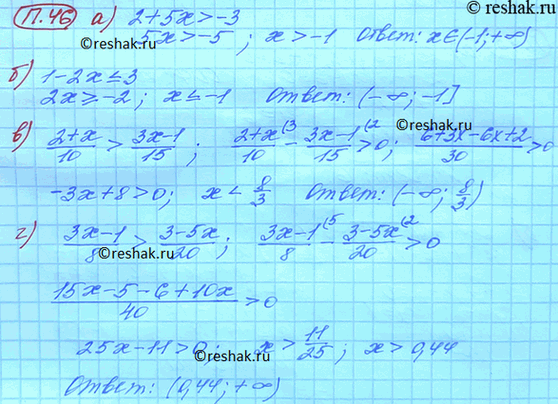 © reshak.ru
П.46 а) 2+5x>-3
5x>-5; x>-1 Ответ: x∈(-1;+∞)
©reshak.ru
б) 1-2x≤3
2x≥-2; x≤-1 Ответ: (-∞;-1]
в) (2+x)/10 > (3x-1)/15; (2+x)/10 (3 - (3x-1)/15 (2 >0; (6+3x-6x+2)/30 >0
©reshak.ru
-3x+8>0; x<8/3 Ответ: (-∞;8/3)
г) (3x-1)/8 > (3-5x)/20; (3x-1)/8 (5 - (3-5x)/20 (2 >0
©reshak.ru
(15x-5-6+10x)/40 >0
25x-11>0; x>11/25; x>0,44
©reshak.ru
Ответ: (0,44;+∞)